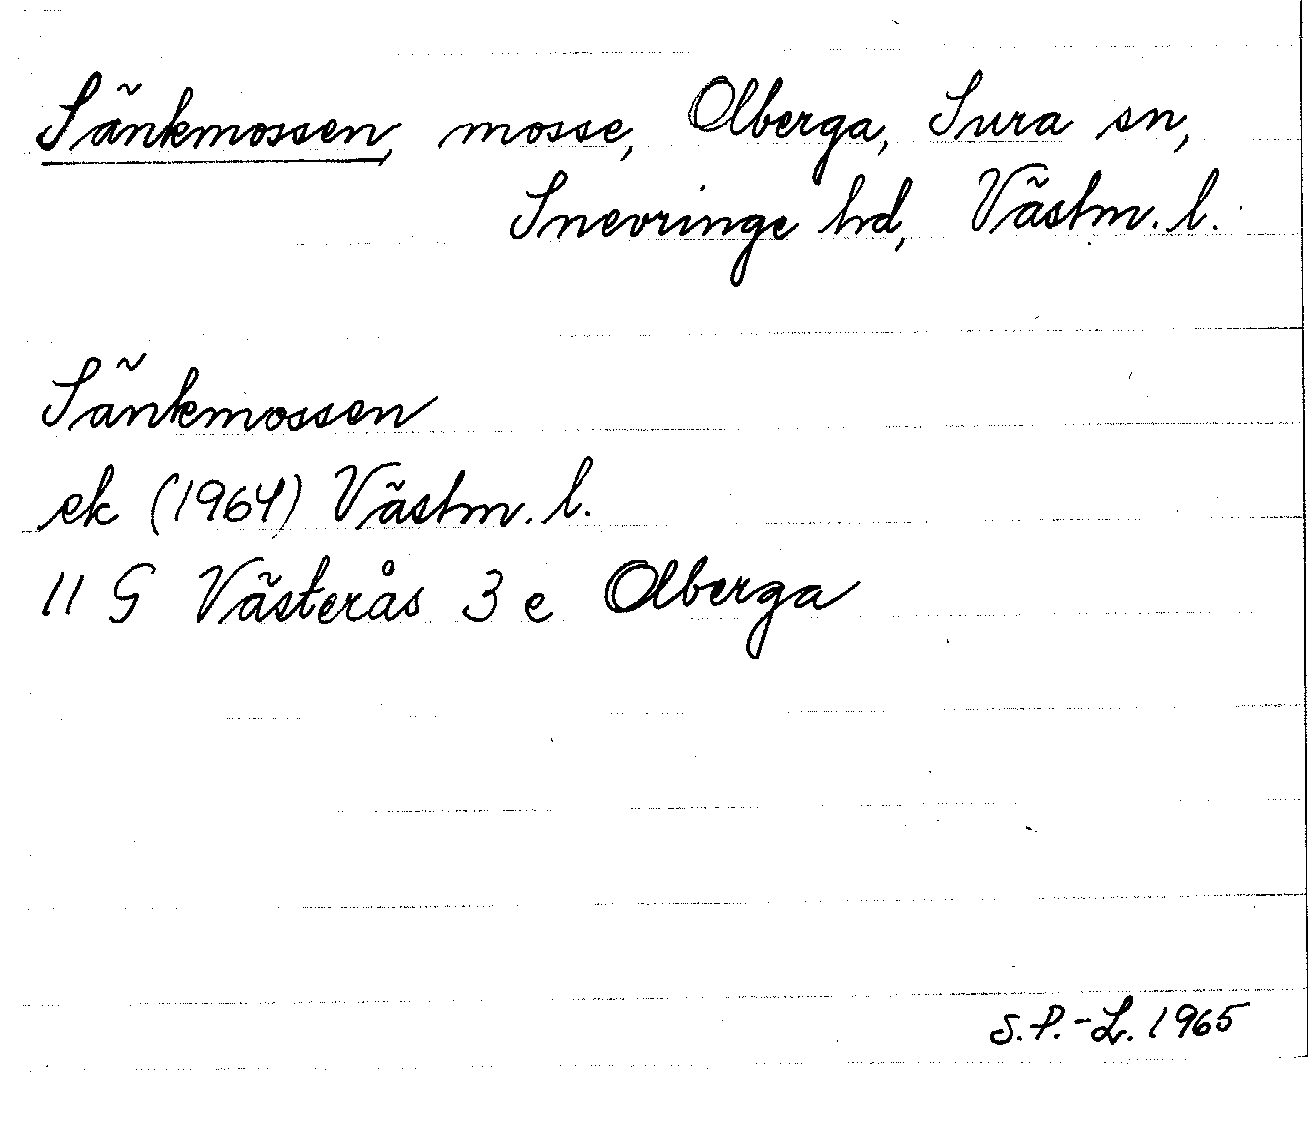 Sänkmossen, mosse, Olberga, Sura sn,
Snevringe hd, Västm. l.
Sänkmossen
ek (1964) Västm. l.
11 G Västerås 3 e Olberga
S.P.-L. 1965